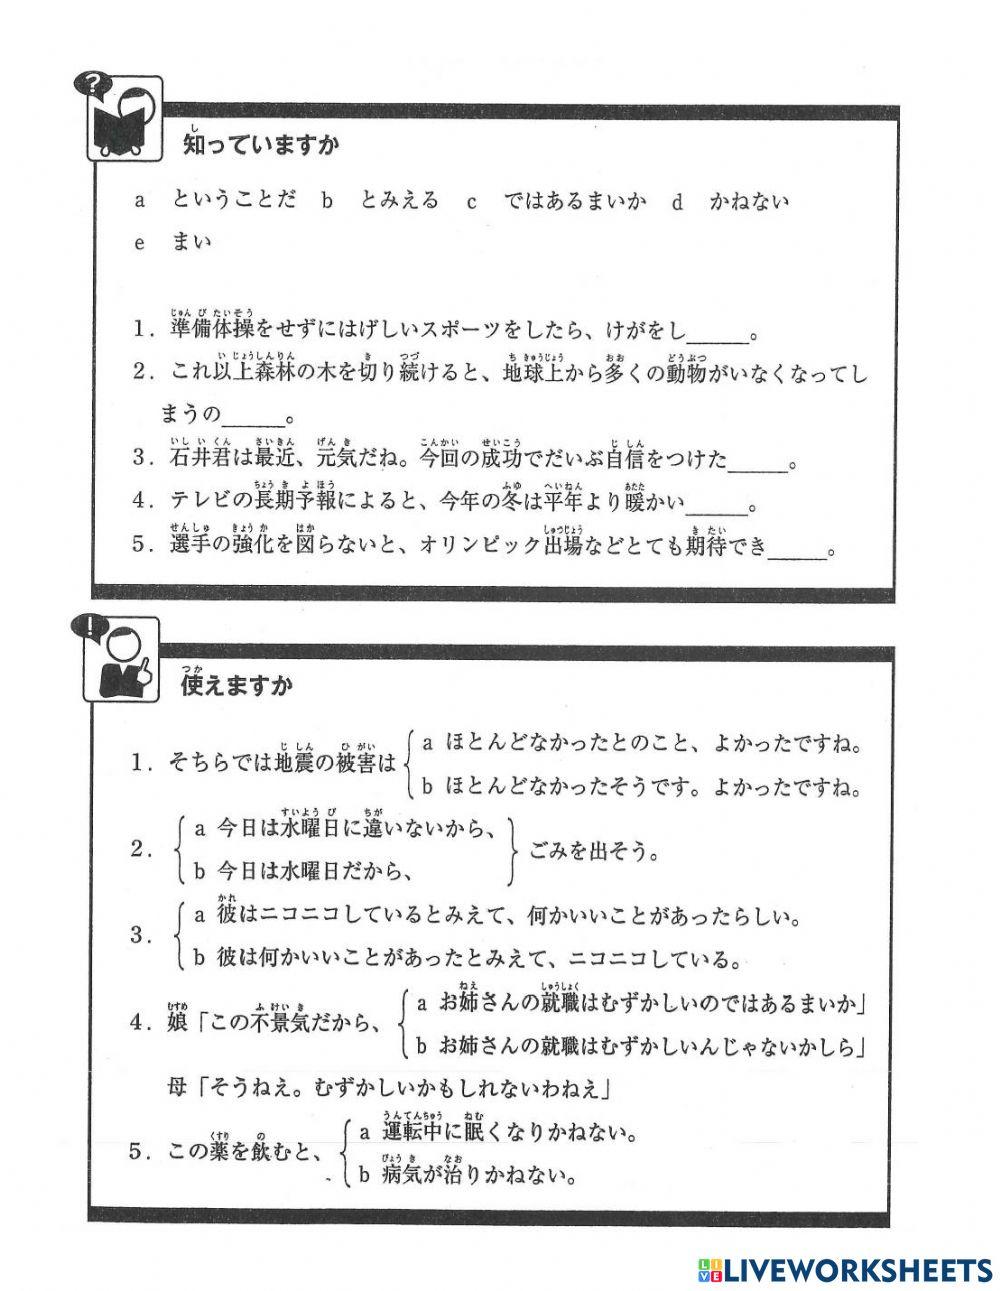 ?
知っていますか
a ということだ b とみえる c ではあるまいか d かねない
e まい
1．準備体操をせずにはげしいスポーツをしたら、けがをし______。
2．これ以上森林の木を切り続けると、地球上から多くの動物がいなくなってし
まうの______。
3．石井君は最近、元気だね。今回の成功でだいぶ自信をつけた______。
4．テレビの長期予報によると、今年の冬は平年より暖かい______。
5．選手の強化を図らないと、オリンピック出場などとても期待でき______。
!
使えますか
1．そちらでは地震の被害は
a ほとんどなかったとのこと、よかったですね。
b ほとんどなかったそうです。よかったですね。
2．
a 今日は水曜日に違いないから、
b 今日は水曜日だから、
ごみを出そう。
3．
a 彼はニコニコしているとみえて、何かいいことがあったらしい。
b 彼は何かいいことがあったとみえて、ニコニコしている。
4．娘「この不景気だから、
a お姉さんの就職はむずかしいのではあるまいか」
b お姉さんの就職はむずかしいんじゃないかしら」
母「そうねえ。むずかしいかもしれないわねえ」
5．この薬を飲むと、
a 運転中に眠くなりかねない。
b 病気が治りかねない。
LIVEWORKSHEETS